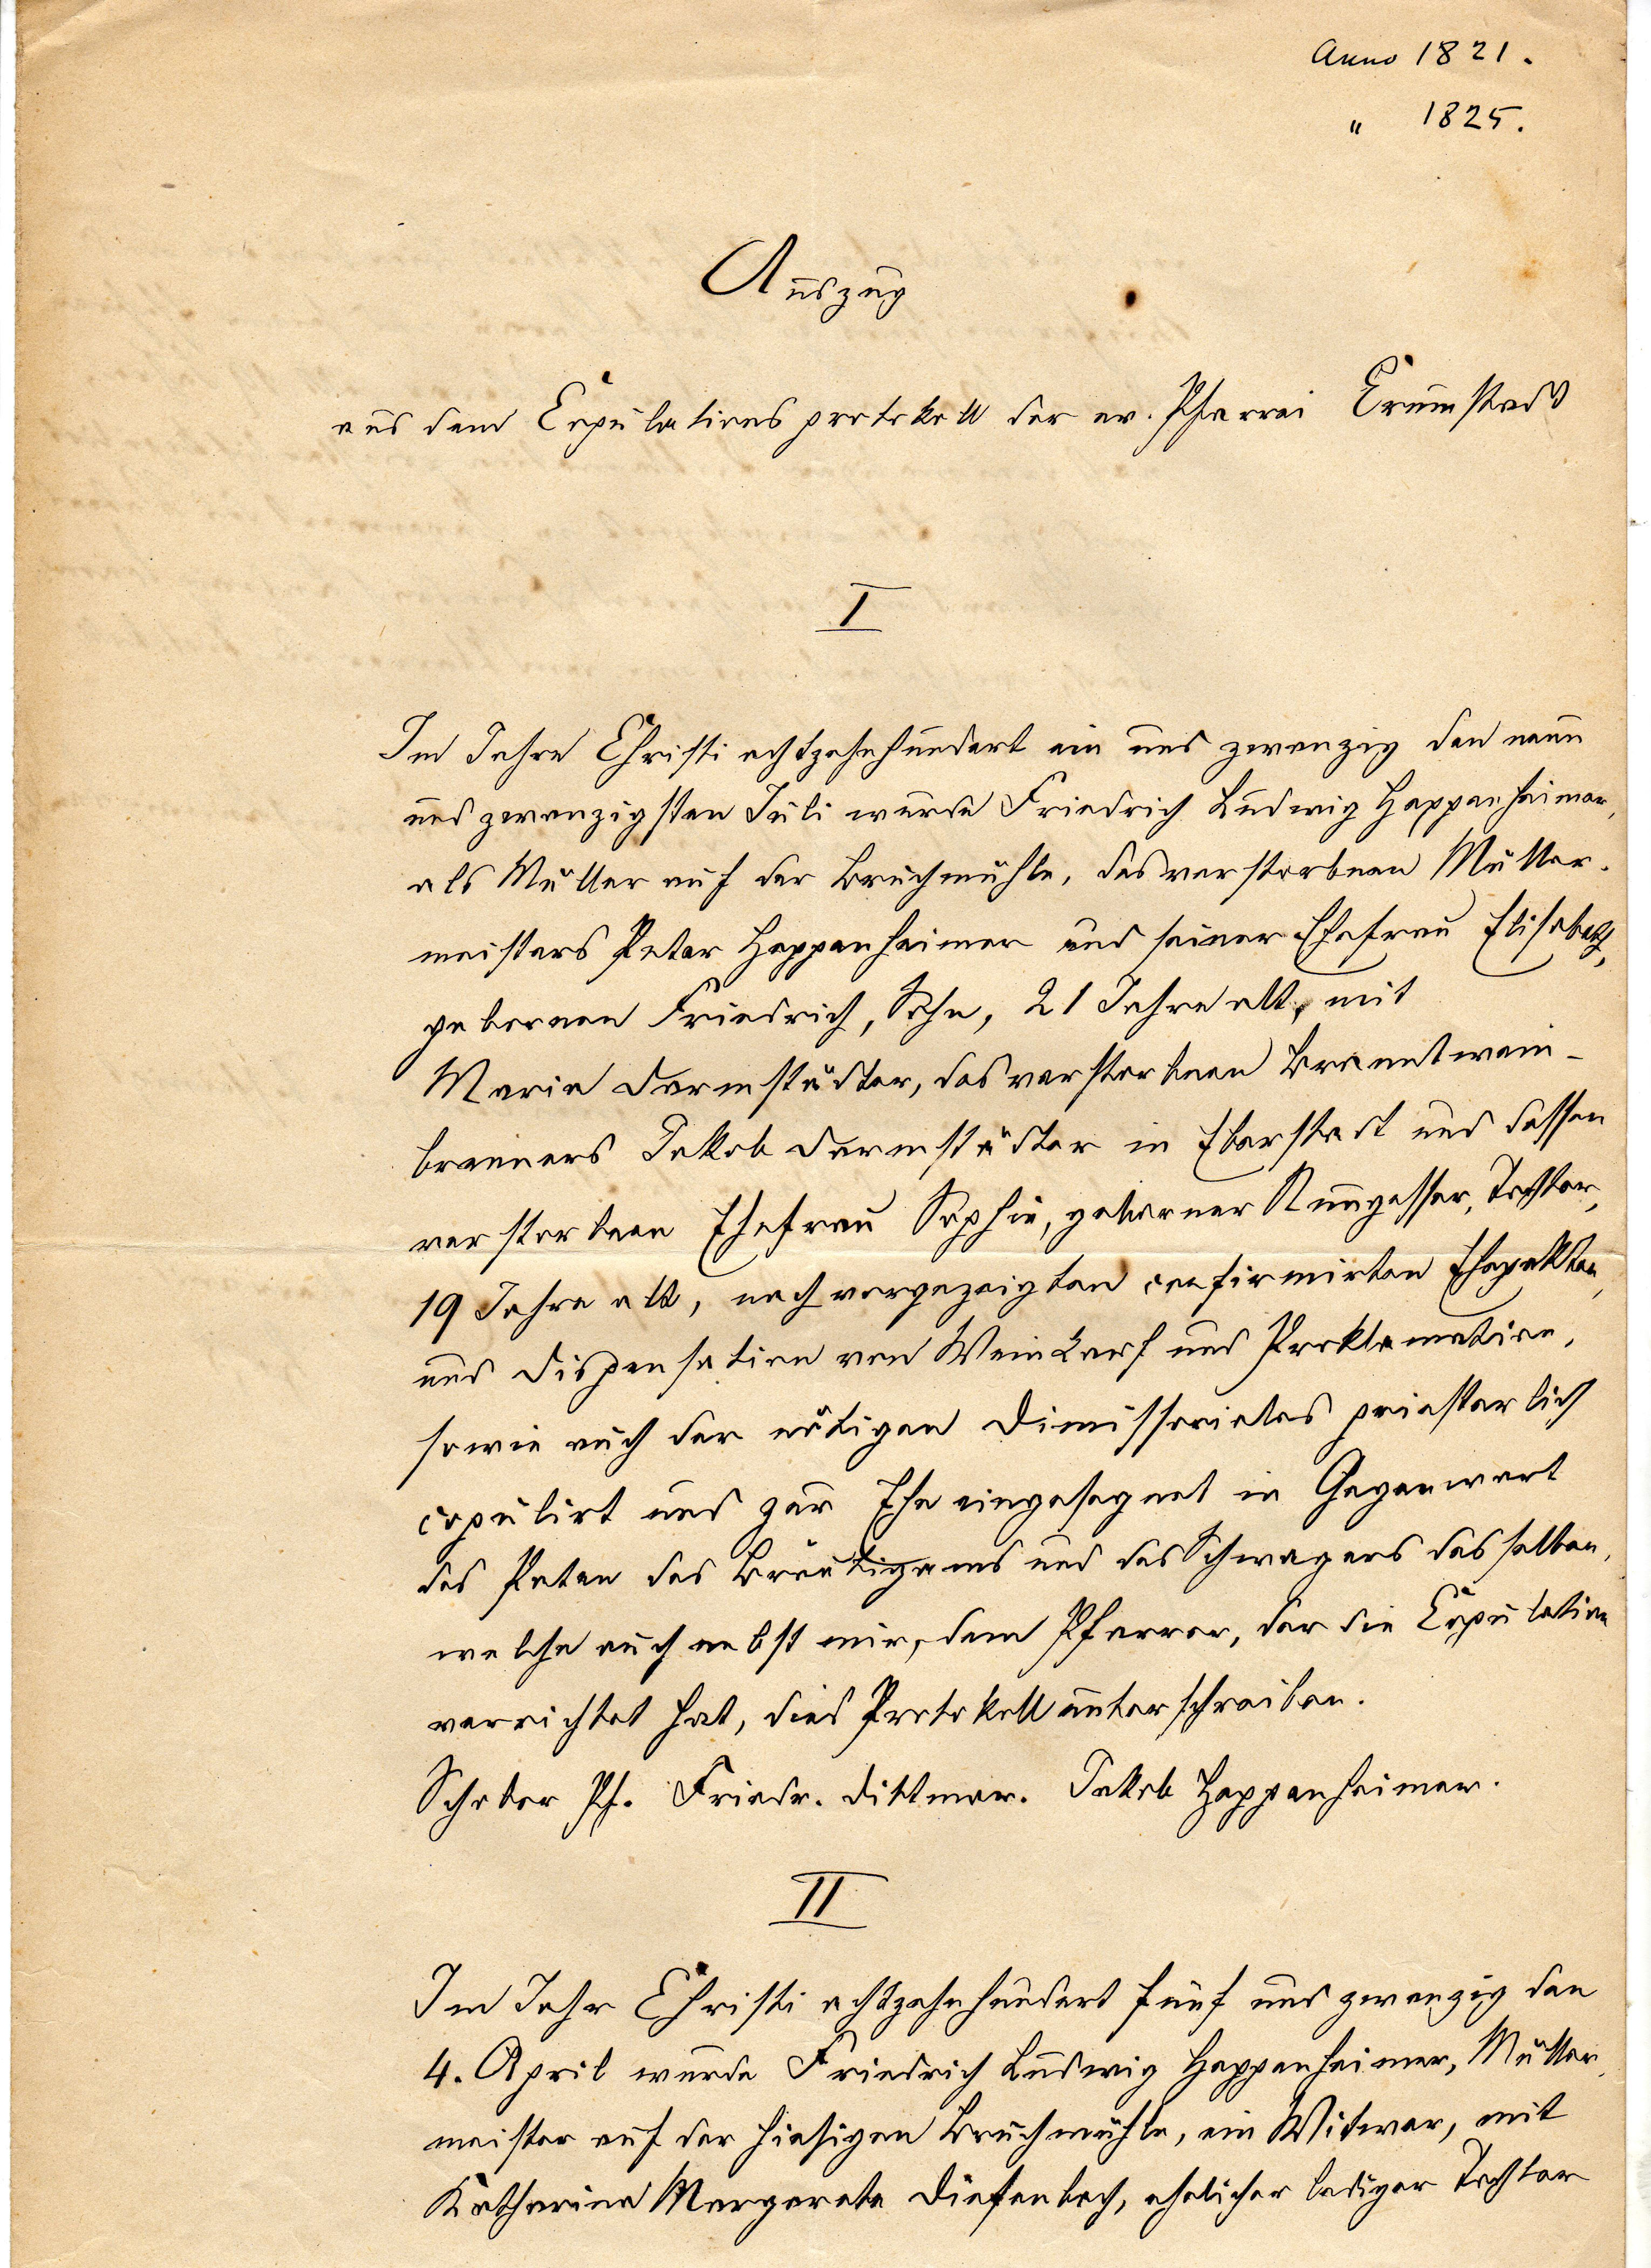 Anno 1821.
" 1825.
Auszug
aus dem Copulationsprotokoll der ev. Pfarrei Crumstadt
I
Im Jahre Christi achtzehnhundert ein und zwanzig den neun
und zwanzigsten Juli wurde Friedrich Ludwig Heppenheimer,
als Müller auf der Bruchmühle, des verstorbenen Müller-
meisters Peter Heppenheimer und seiner Ehefrau Elisabeth,
gebornen Friedrich, Sohn, 21 Jahre alt, mit
Maria Darmstädter, des verstorbenen Branntwein-
brenners Jakob Darmstädter in Eberstadt und dessen
verstorbenen Ehefrau Sophie, geborner Nungesser, Tochter,
19 Jahre alt, nach vorgezeigten confirmirten Ehepakten,
und Dispensation von Weinkauf und Proklamation,
sowie auch der nötigen Dimissoriales priesterlich
copulirt und zur Ehe eingesegnet in Gegenwart
des Paten des Bräutigams und des Schwagers desselben,
welche auch nebst mir, dem Pfarrer, der die Copulation
verrichtet hat, dies Protokoll unterschreiben.
Schober Pf. Friedr. Dittmar. Jakob Heppenheimer.
II
Im Jahr Christi achtzehnhundert fünf und zwanzig den
4. April wurde Friedrich Ludwig Heppenheimer, Müller-
meister auf der hiesigen Bruchmühle, ein Witwer, mit
Katharina Margareta Diefenbach, ehelicher lediger Tochter